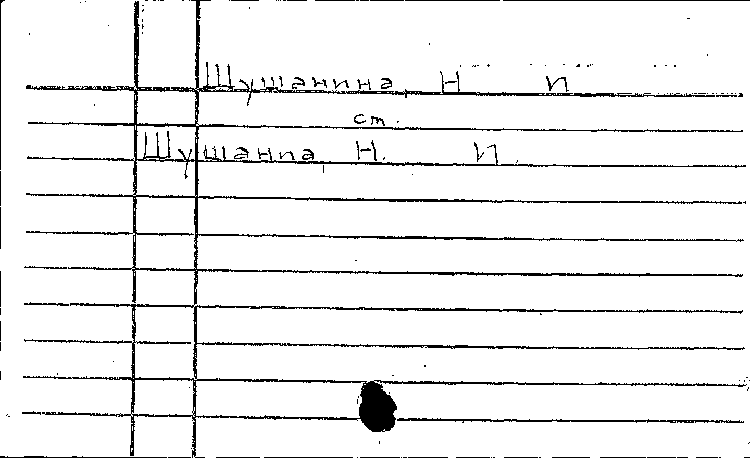 Шушанина, Н И
ст.
Шушанпа, Н. И.